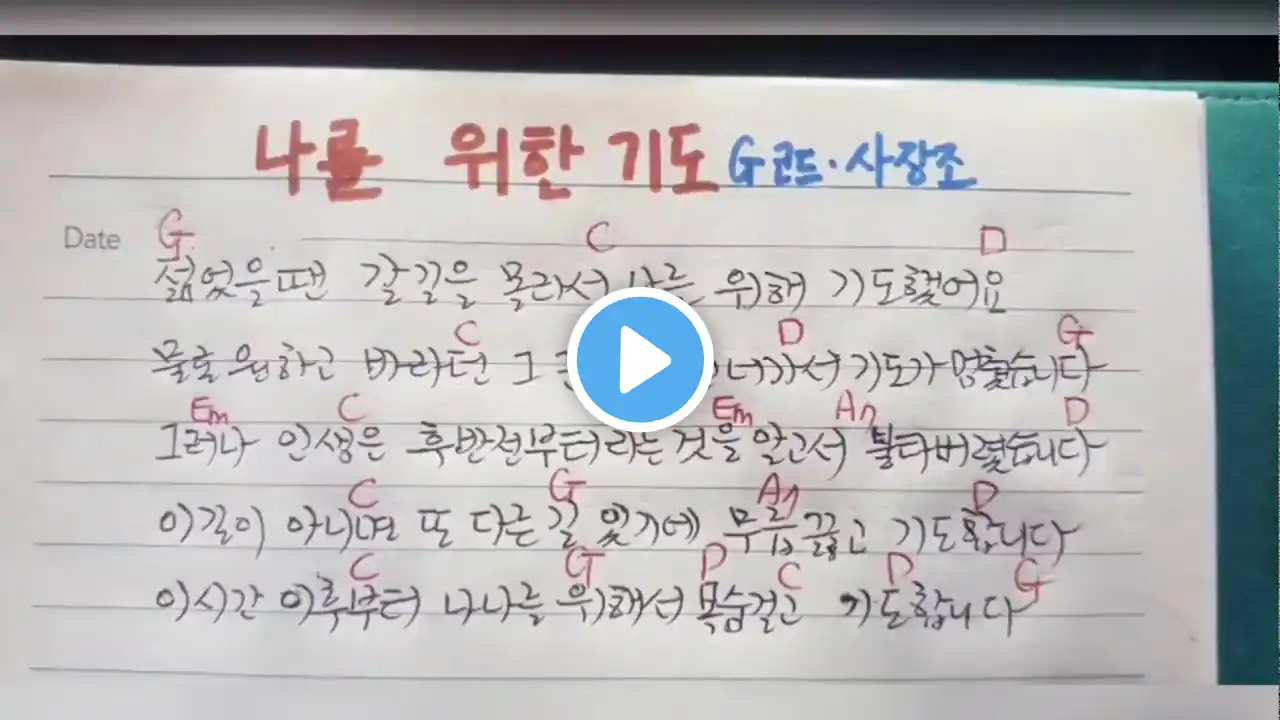 나를 위한 기도 G코드·사장조
Date G C D
젊었을땐 갈길을 몰라서 나를 위해 기도했어요
C D G
물로 원하고 바라던 그 너가서 기도가 멈췄습니다
Em C Em Am D
그러나 인생은 후반전부터라는것을 알고서 불타버렸습니다
C G Am D
이길이 아니면 또 다른길 있기에 무릎꿇고 기도합니다
C G D C D G
이시간 이후부터 나나를 위해서 목숨걸고 기도합니다